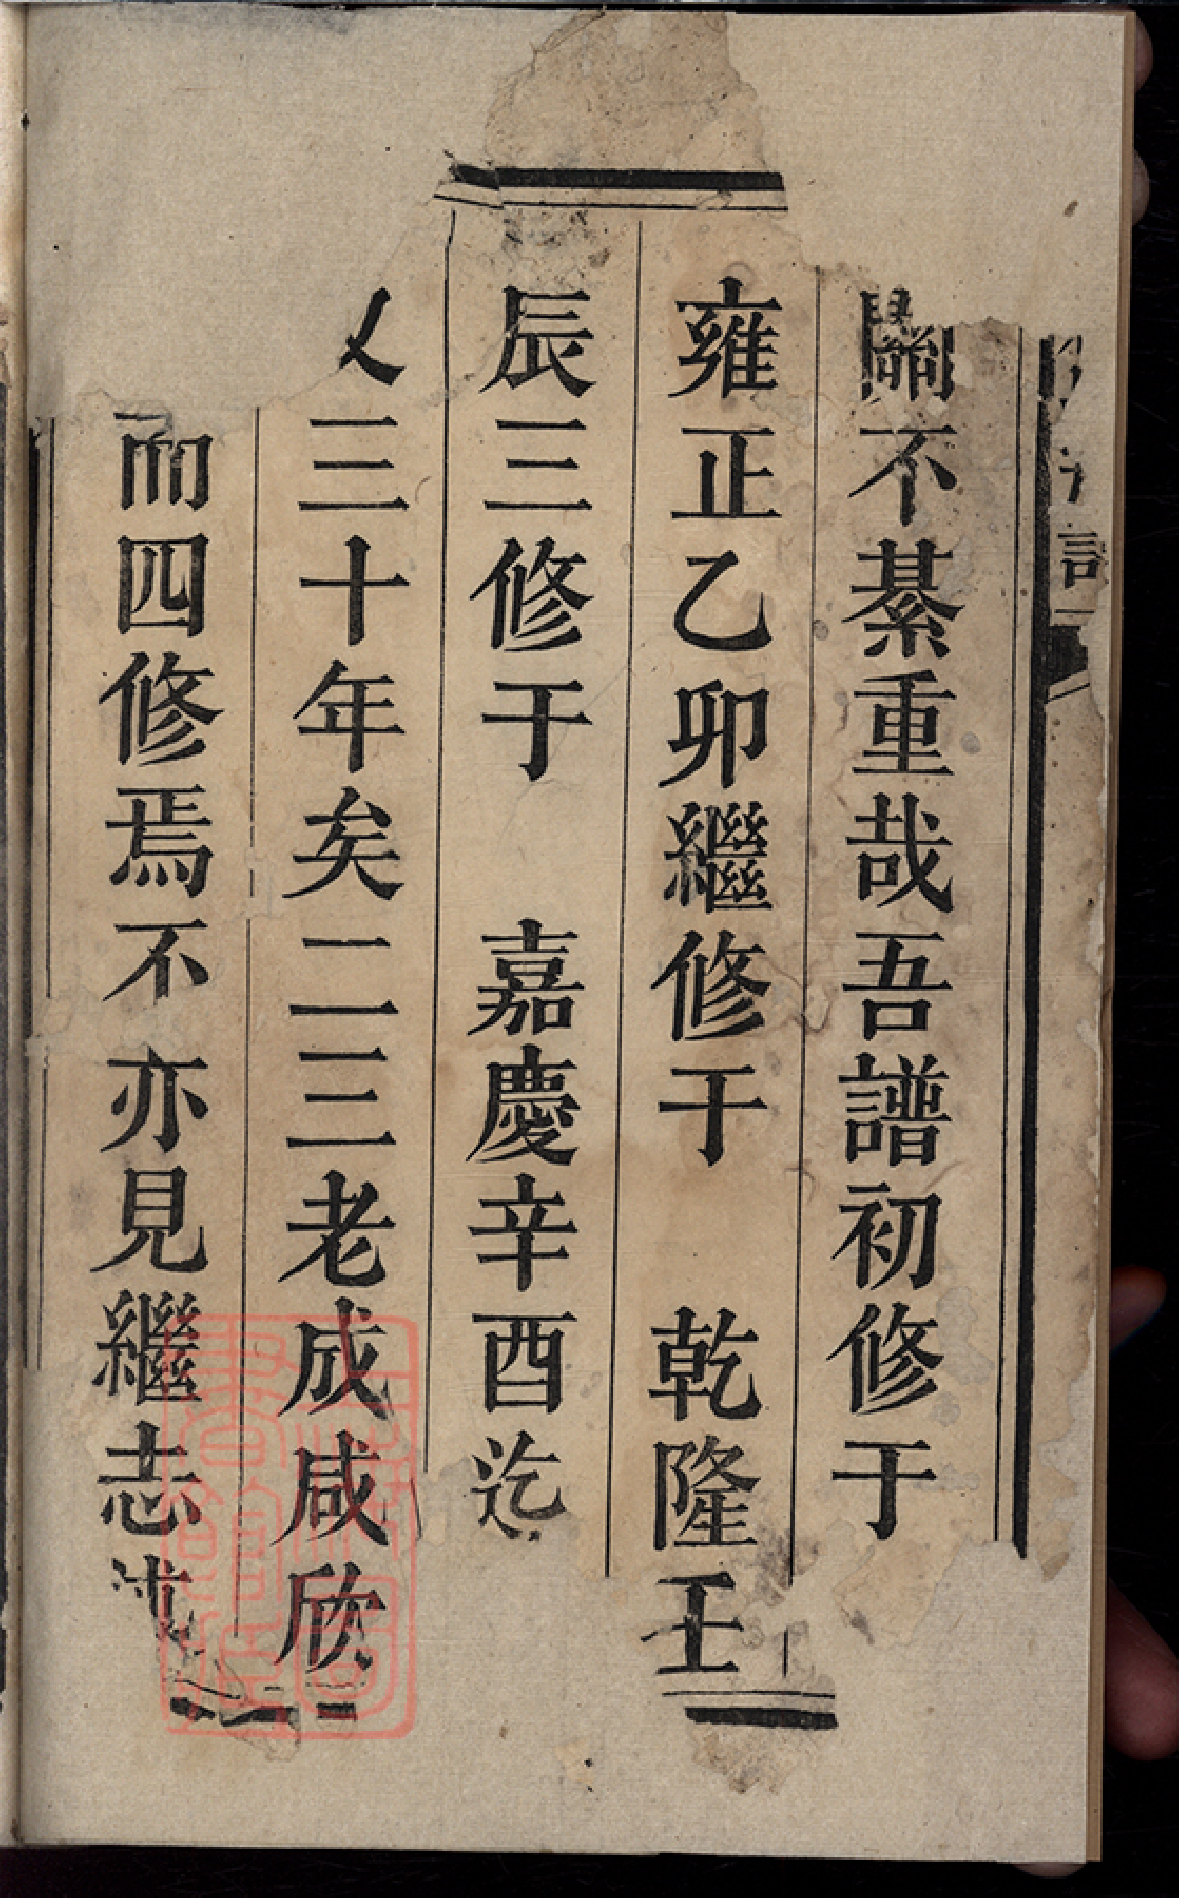 關不綦重哉吾譜初修于
雍正乙卯繼修于　乾隆壬
辰三修于　嘉慶辛酉迄
又三十年矣一二三老成咸欣
而四修焉不亦見繼志述